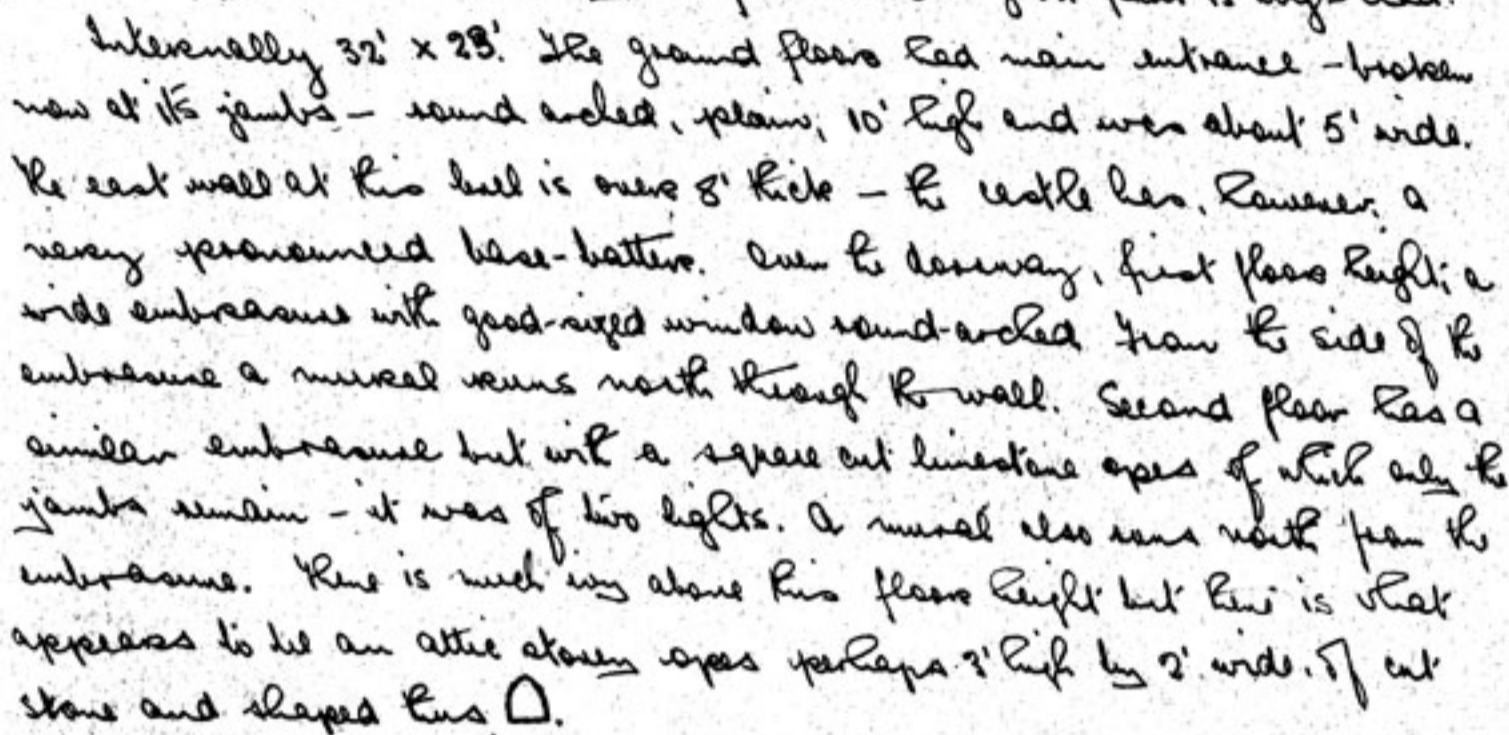 Internally 32' x 28'. The ground floor had main entrance - broken
now at its jambs - round arched, plain, 10' high and was about 5' wide.
The east wall at this level is over 8' thick - the castle has, however, a
very pronounced base-batter. Over the doorway, first floor height; a
wide embrasure with good-sized window round-arched From the side of the
embrasure a mural runs north through the wall. Second floor has a
similar embrasure but with a square cut limestone opes of which only the
jambs remain - it was of two lights. A mural also runs north from the
embrasure. There is much ivy above this floor height but there is what
appears to be an attic storey opes perhaps 3' high by 2' wide. Of cut
stone and shaped thus